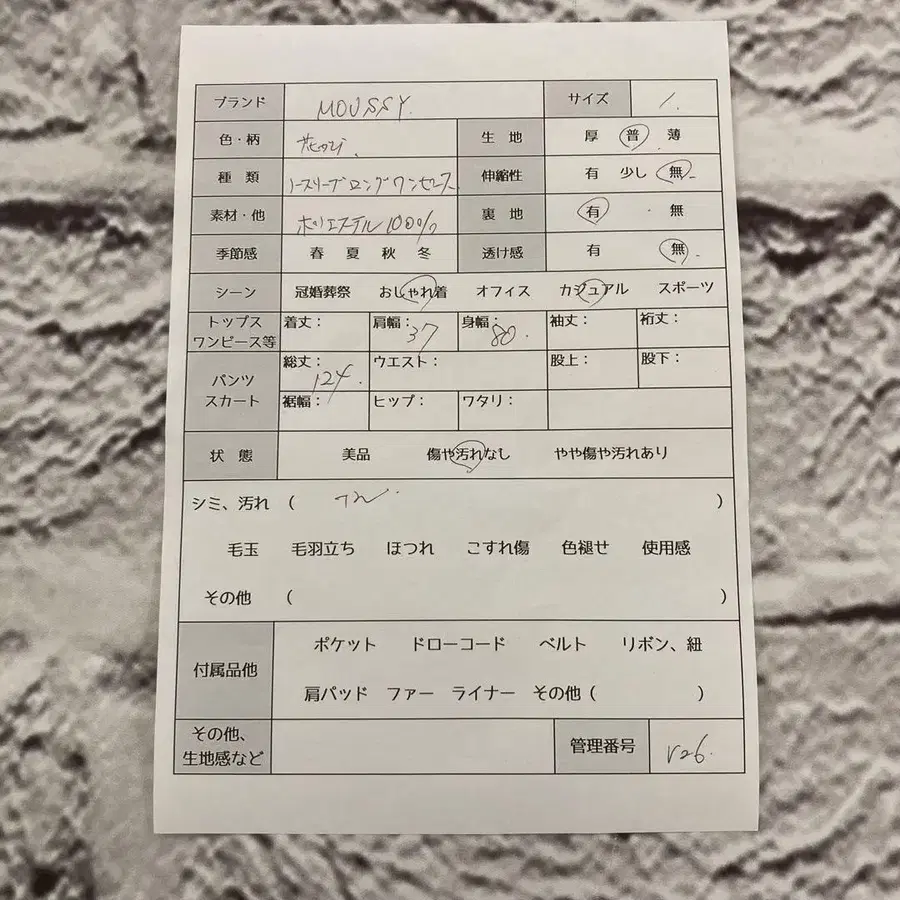 ブランド MOUSSY. サイズ 1.
色・柄 生地 厚 普 薄
種類 ノースリーブロングワンピース 伸縮性 有 少し 無
素材・他 ポリエステル100% 裏地 有 ・ 無
季節感 春 夏 秋 冬 透け感 有 無
シーン 冠婚葬祭 おしゃれ着 オフィス カジュアル スポーツ
トップス ワンピース等 着丈: 肩幅: 37 身幅: 80. 袖丈: 裄丈:
パンツ スカート 総丈: 124. ウエスト: 股上: 股下:
裾幅: ヒップ: ワタリ:
状態 美品 傷や汚れなし やや傷や汚れあり
シミ、汚れ ( )
毛玉 毛羽立ち ほつれ こすれ傷 色褪せ 使用感
その他 ( )
付属品他 ポケット ドローコード ベルト リボン、紐
肩パッド ファー ライナー その他 ( )
その他、
生地感など 管理番号 V26.